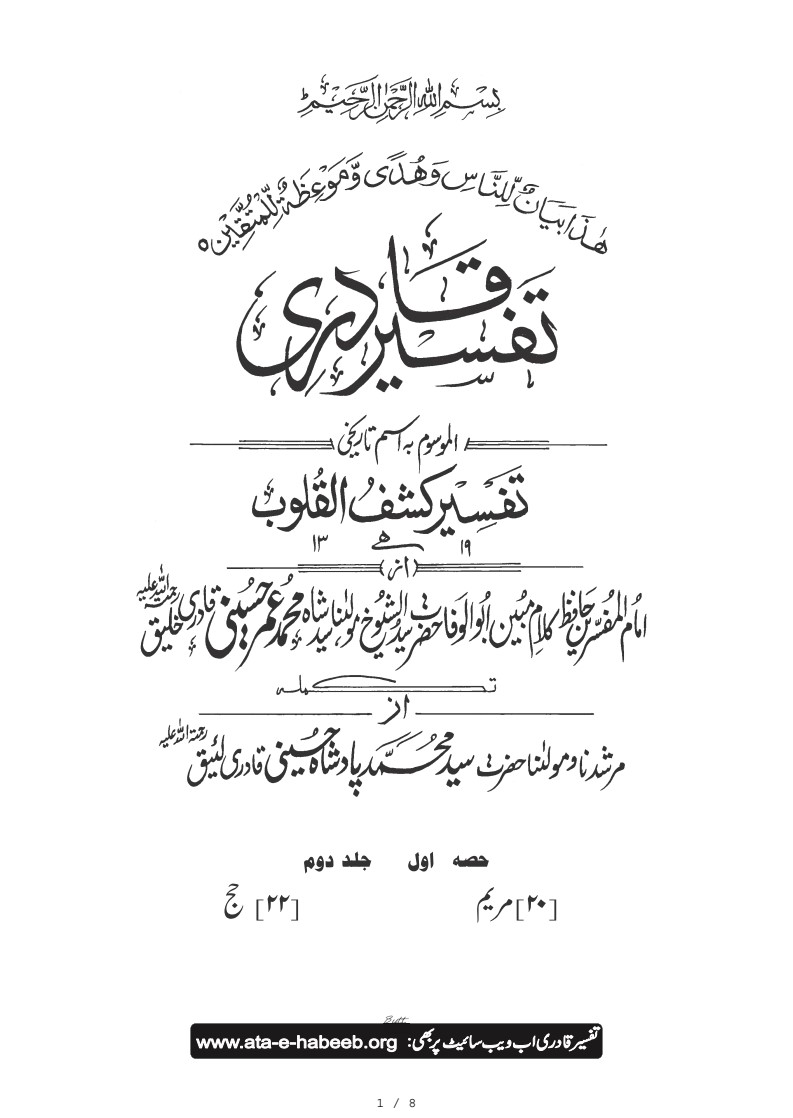 بِسْمِ اللّٰهِ الرَّحْمٰنِ الرَّحِيْمِ
هٰذَا بَيَانٌ لِّلنَّاسِ وَهُدًى وَّمَوْعِظَةٌ لِّلْمُتَّقِيْنَ ٥
تفسیر قادری
الموسوم بہ اسم تاریخی
تفسیر کشف القلوب
۱۹ ھے ۱۳
(از)
امام المفسرین حافظ کلام مبین ابوالوفا حضرت سید الشیوخ مولٰنا سید شاہ محمد عمر حسینی قادری خلیق رحمۃ اللہ علیہ
تکملہ
از
مرشدنا و مولٰنا حضرت سید محمد پادشاہ حسینی قادری لئیق رحمۃ اللہ علیہ
حصہ اول جلد دوم
[۲۰] مریم [۲۲] حج
تفسیر قادری اب ویب سائیٹ پر بھی: www.ata-e-habeeb.org
1 / 8